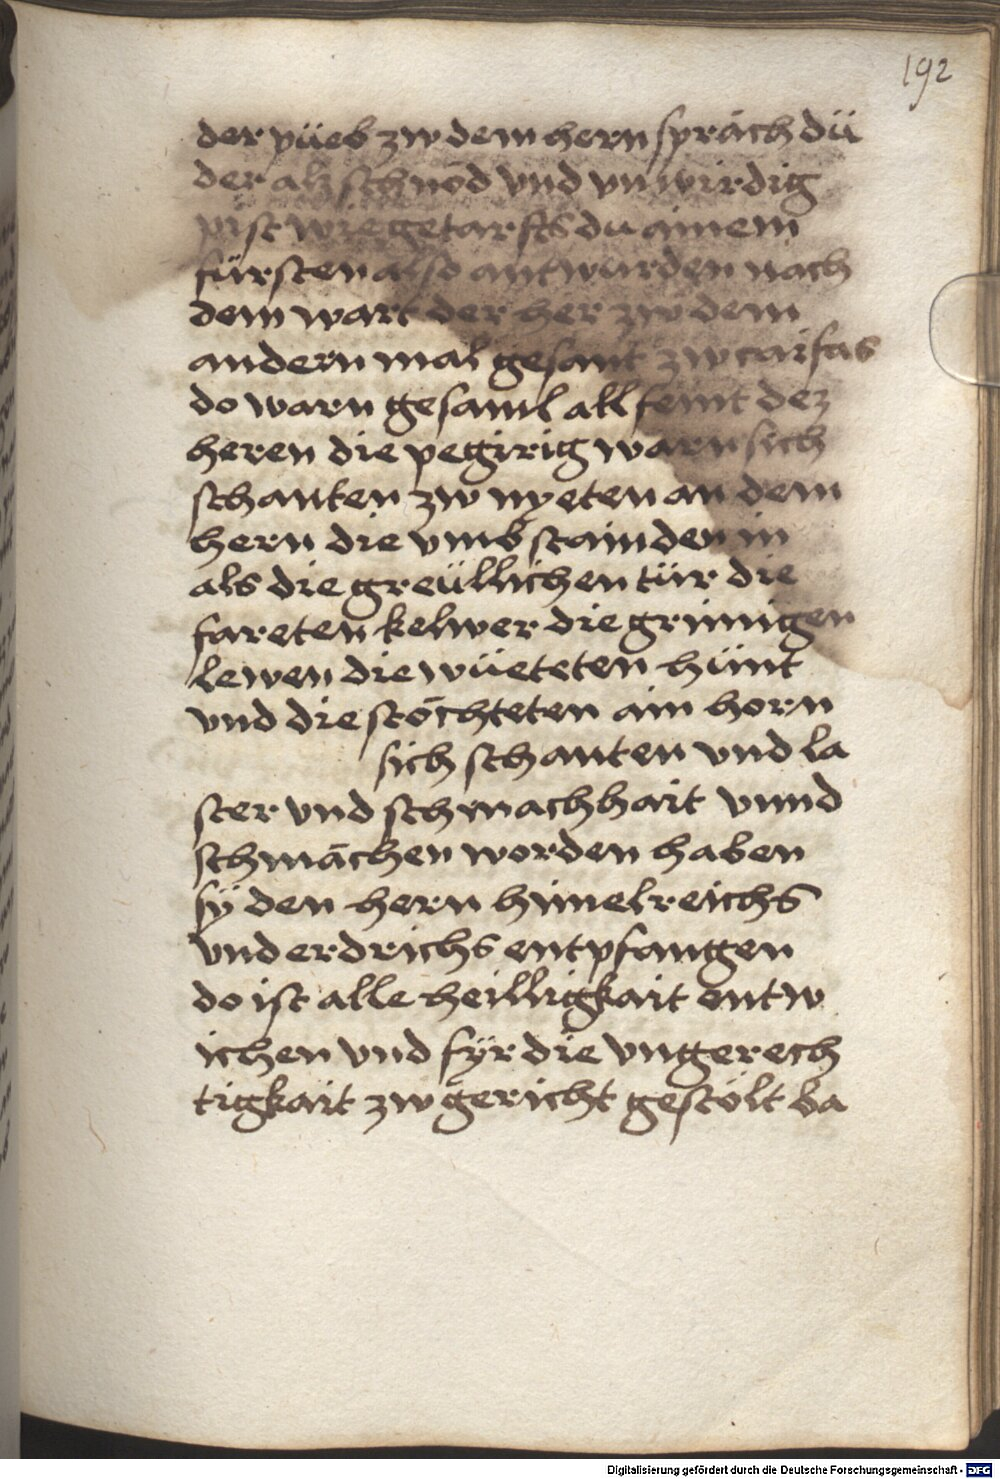 192
der püeb zw dem hern spräch dü
der alz schnöd vnd vnwirdig
pist wie getarfts du ainem
fürsten also antwurden nach
dem wart der her zw dem
andern mal gesant zw caifas
do warn gesaml all feint dez
heren die pegirig warn sich
schanten zw nyeten an dem
hern die vmbstainden in
als die greüllichen tür die
fareten kelwer die grimigen
lewen die wüeteten hünt
vnd die stöchteten ain horn
sich schanten vnd la
ster vnd schmachhait vnnd
schmächen worden haben
sÿ den hern himelreichs
vnd erdrichs entpfangen
do ist alle heilligkait entw
ichen vnd fÿr die vngerech
tigkait zw gericht gestölt ba
Digitalisierung gefördert durch die Deutsche Forschungsgemeinschaft - DFG